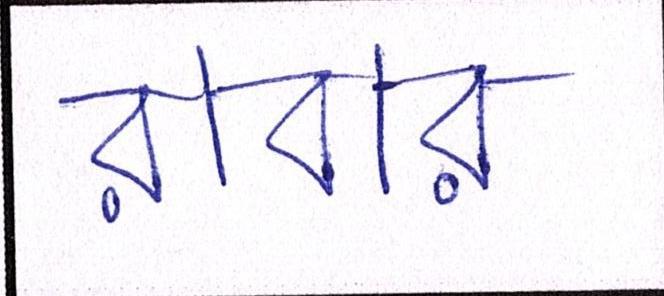 রাবার